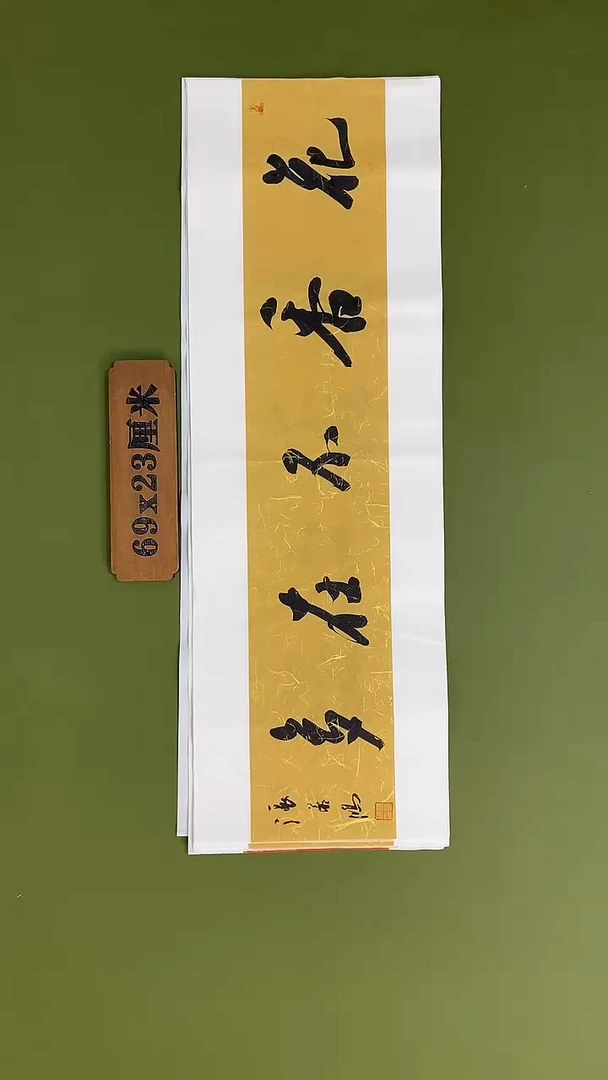 花香不在多
69x23厘米